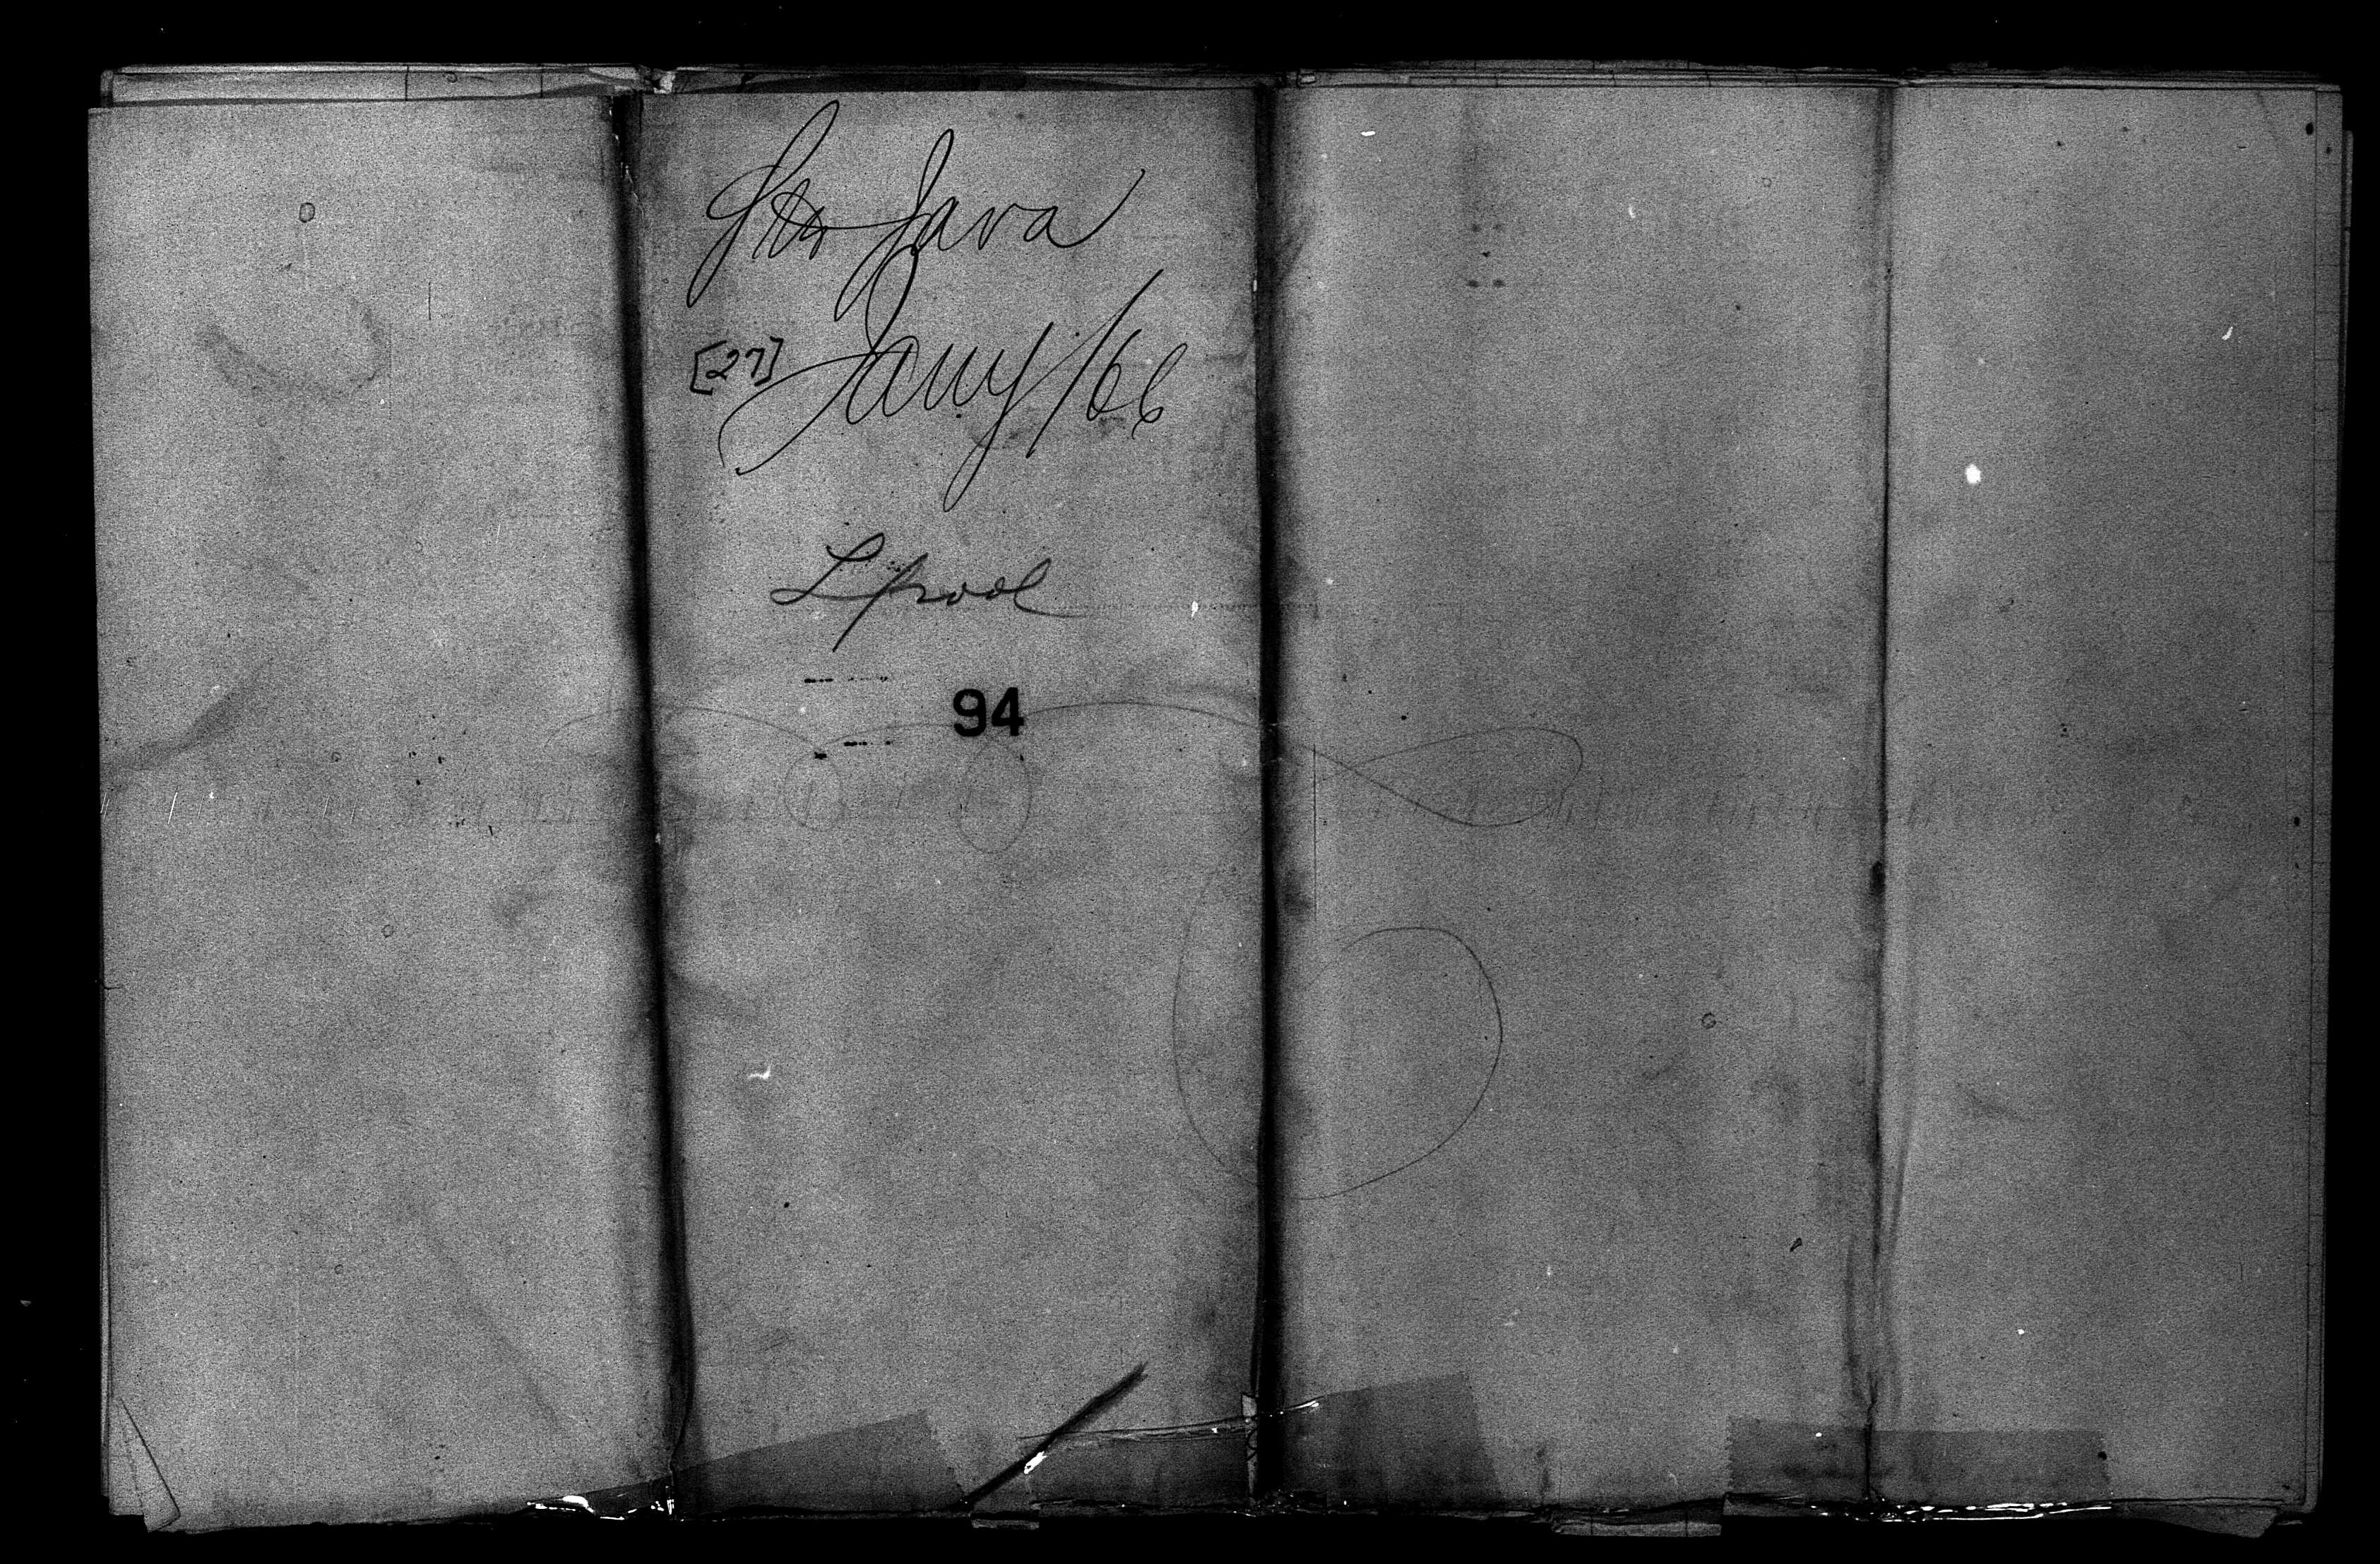 Str Java
[27] Jany/66
Lpool
94